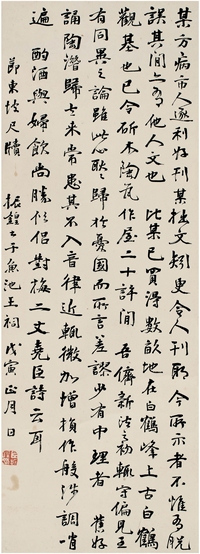 某方病市人逐利好刊某拙文欲毁其板矧更令人刊耶今所示者不惟有脱
誤其間亦有他人文也 比集已買得數畝地在白鶴峰上古白鶴
觀基也已令斫木陶瓦作屋二十許間 吾儕新法之初輒守偏見至
有同異之論雖此心耿耿歸於憂國而所言差謬少有中理者 舊好
誦陶潛歸去來常患其不入音律近輒微加增損作般涉調哨
遍 勸酒與婦飲尚勝俗侶對梅二丈堯臣詩云耳
節東坡尺牘 振鐘 子魚池王祠 戊寅正月 日